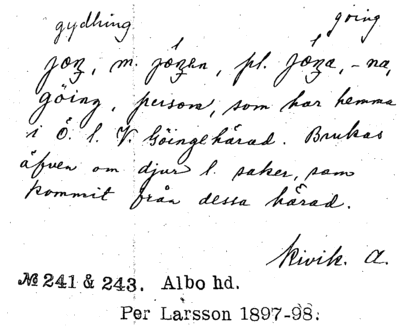 gydhing göing
jøŋ, m. jǿŋen, pl. jǿŋa, -na,
göing, person, som har hemma
i Ö. l. V. Göingehärad. Brukas
äfven om djur l. saker, som
kommit från dessa härad.
Kivik. A.
№ 241 & 243. Albo hd.
Per Larsson 1897-98.